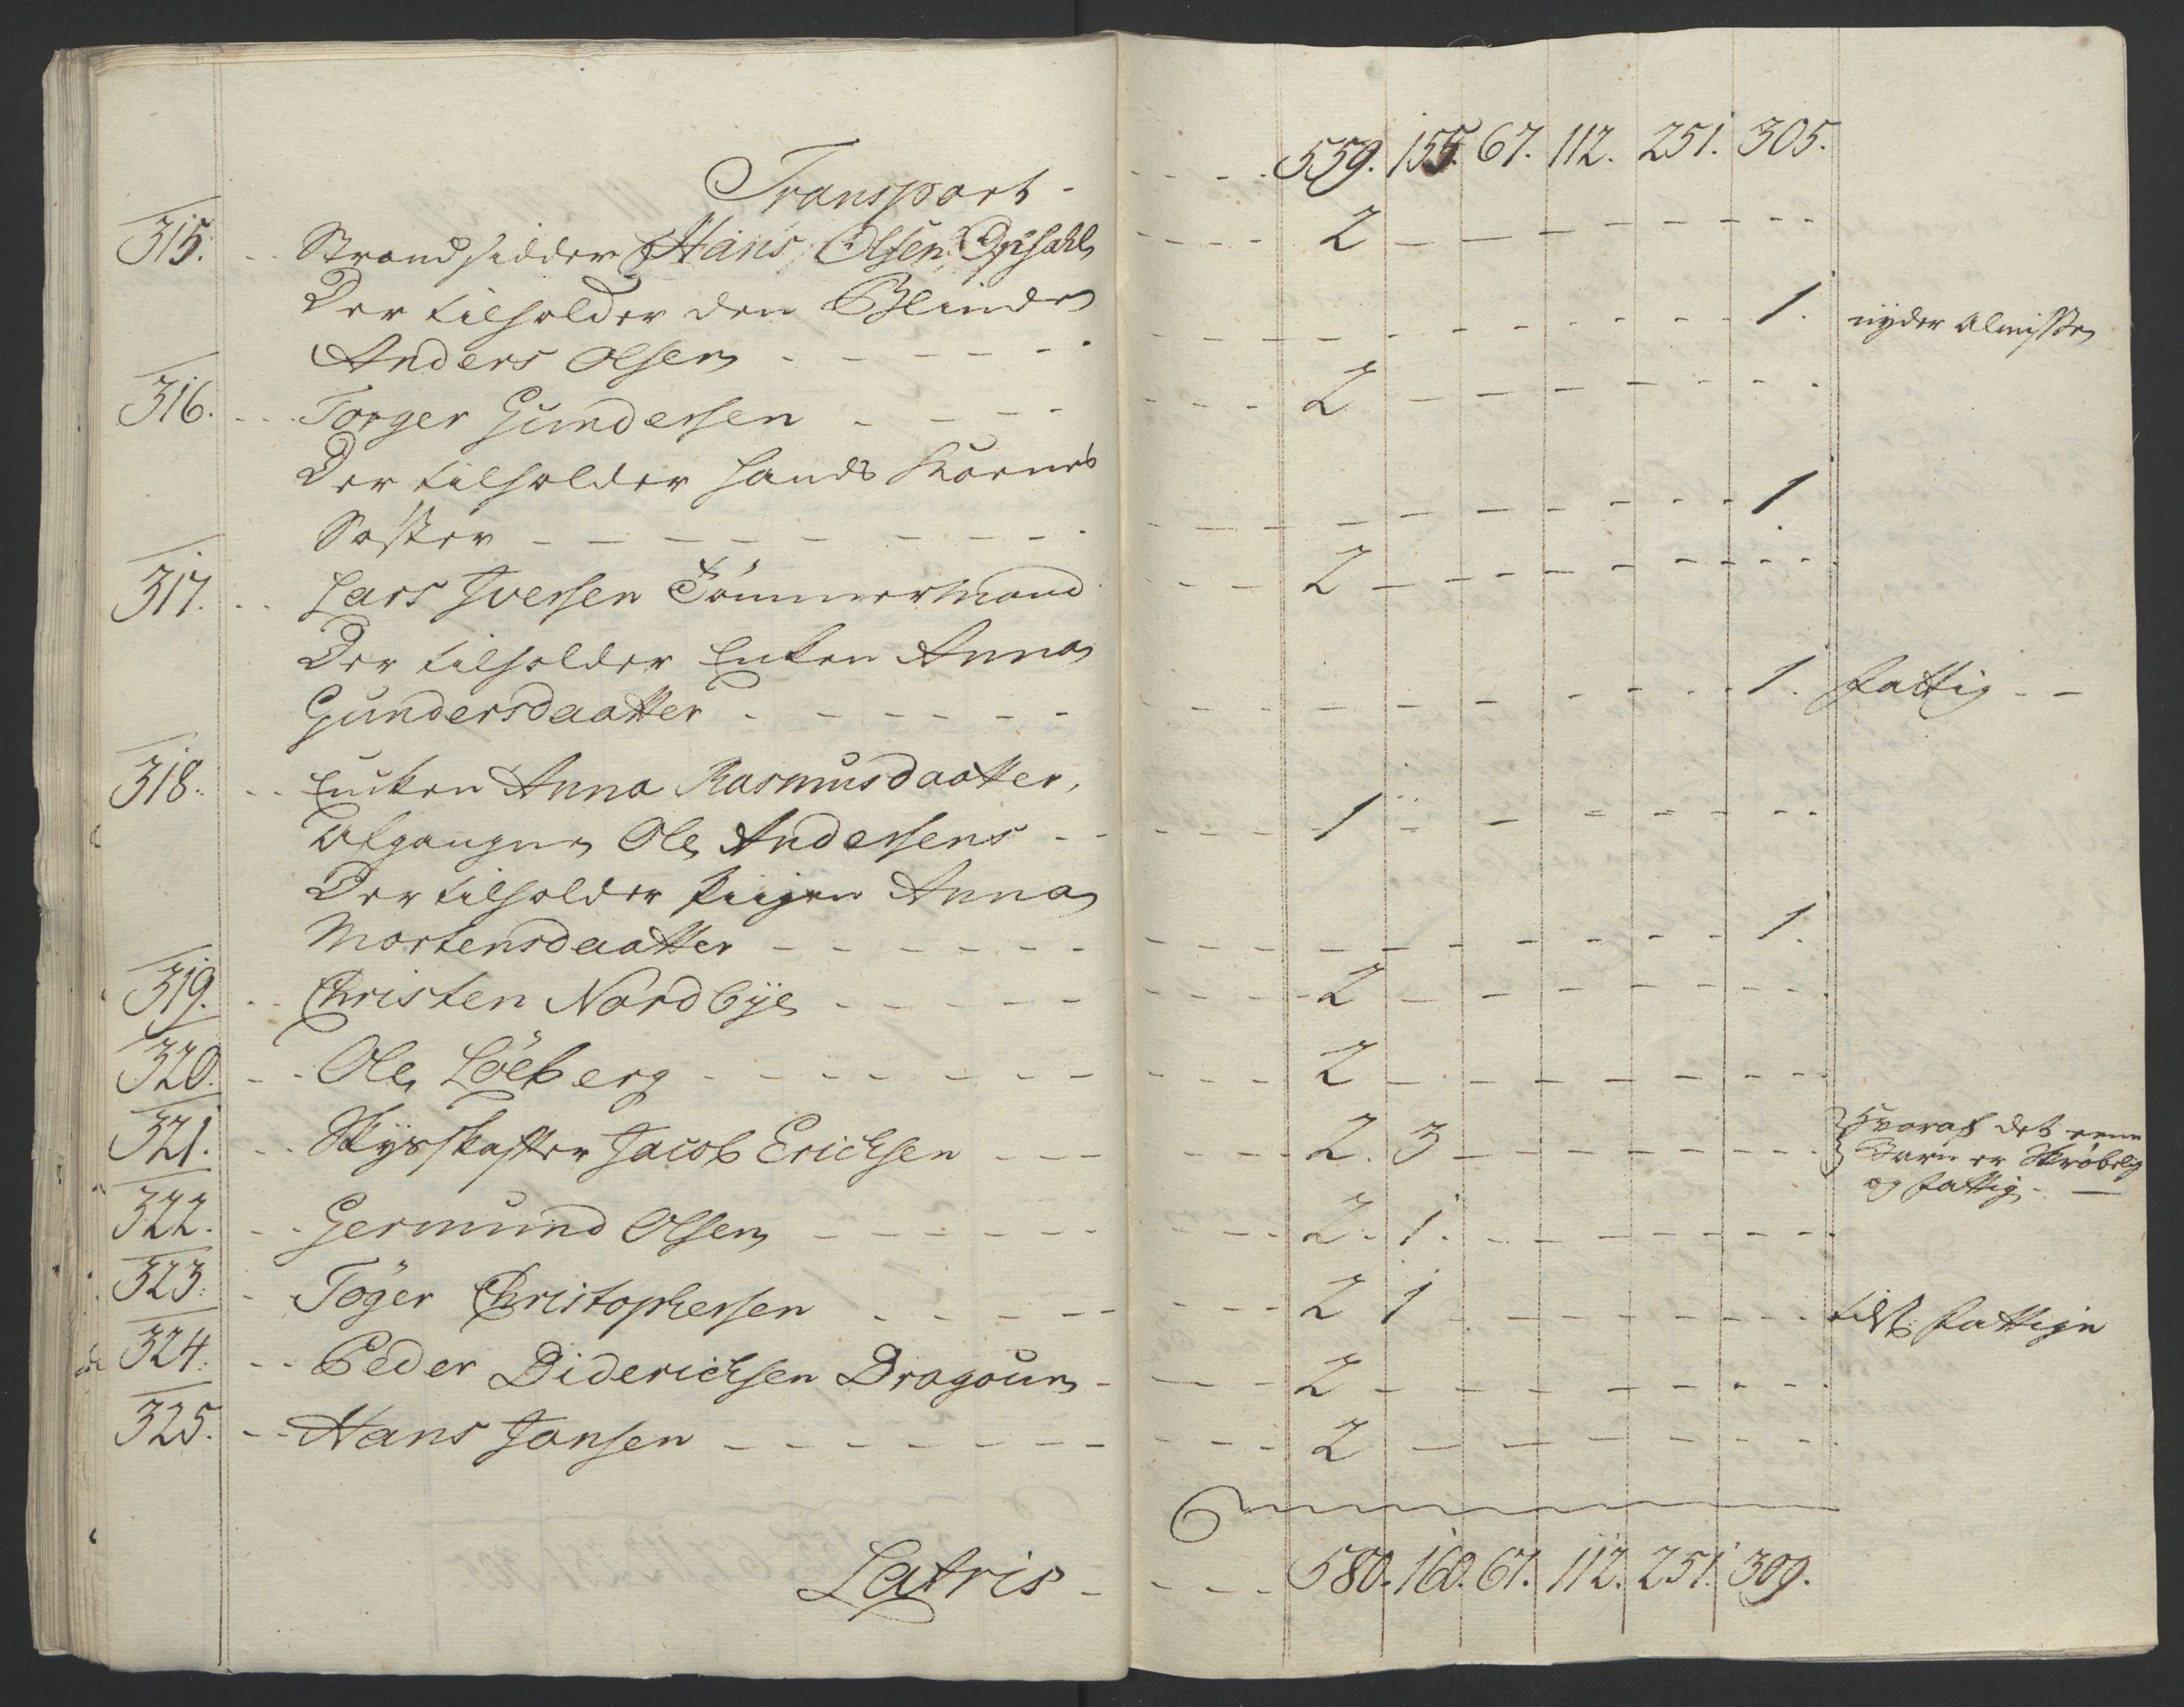 Transport - - - - - 559. 155. 67. 112. 251. 305.
315. - - Strandsidder Hans Olsen Opsahl - - - - 2 - - - - - - - -
Der tilholder den Blinde
Anders Olsen - - - - - - - - - - - - - 1. nyder Almisse
316. - - Torger Gundersen - - - - - - - 2 - - - - - - - -
Der tilholder hands Kones
Søster - - - - - - - - - - - - - - 1
317. - - Lars Iversen Tømmermand - - - 2 - - - - - - - -
Der tilholder Enken Anna
Gundersdaatter - - - - - - - - - - - - 1. fattig - -
318. - - Enken Anna Rasmusdaatter,
Afgangne Ole Andersens - - - - - - 1 - - - - - - -
Der tilholder Piigen Anna
Mortensdaatter - - - - - - - - - - - - 1.
319. - - Christen Nordbye - - - - - - - - 2 - - - - - - -
320. - - Ole Löeberg - - - - - - - - - - 2 - - - - - - -
321. - - Skydsskaffer Jacob Erichsen - - - - - - 2. 3 - - - - - - - hvoraf det eene
Barn er Skrøbelig
og fattig - -
322. - - Germund Olsen - - - - - - - - - 2. 1. - - - - - - -
323. - Töger Christophersen - - - - - - - - 2 1 - - - - - - - fattige
324. - - Peder Diderichsen Dragoun - - - - 2 - - - - - - -
325. - - Hans Jansen - - - - - - - - - - 2 - - - - - - -
Latris - - - - - 580. 160. 67. 112. 251. 309.